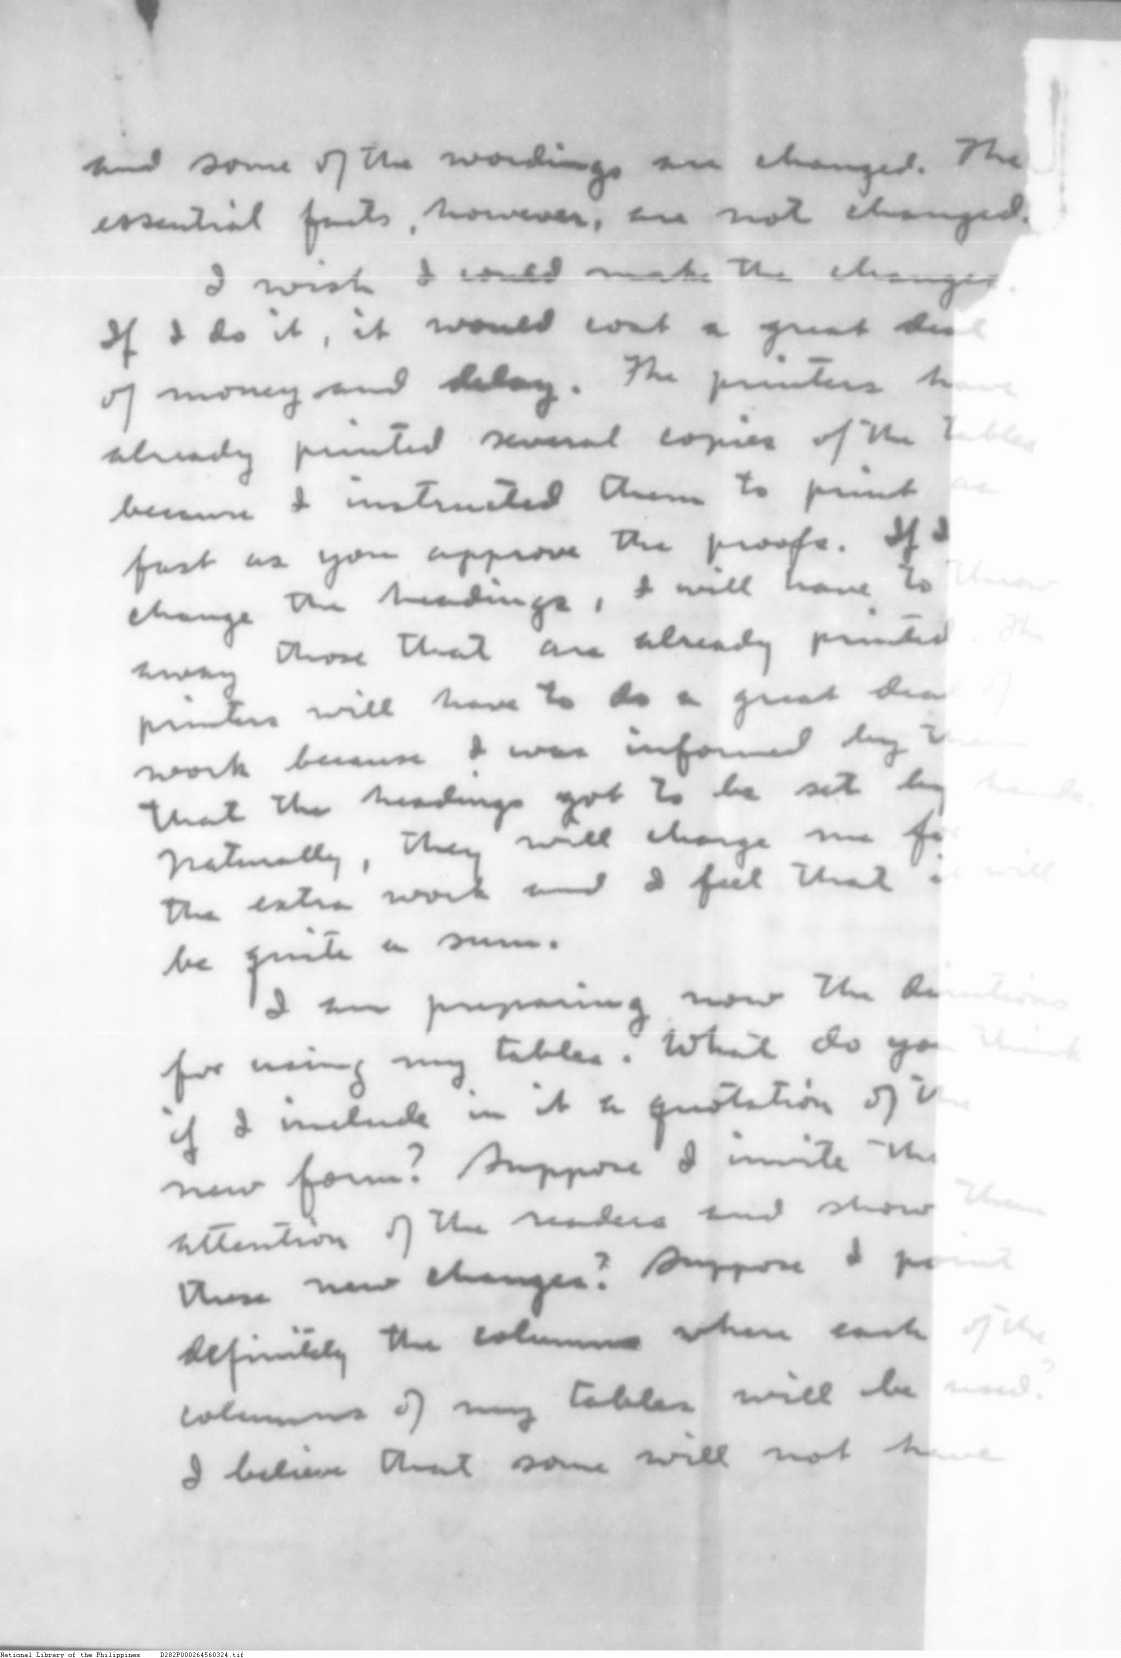 and some of the wordings are changed. The
essential facts, however, are not changed.
I wish I could make the changes.
If I do it, it would cost a great deal
of money and delay. The printers have
already printed several copies of the tables
because I instructed them to print as
fast as you approve the proofs. If I
change the headings, I will have to throw
away those that are already printed. The
printers will have to do a great deal of
work because I was informed by them
that the headings got to be set by hands.
Naturally, they will charge me for
the extra work and I feel that it will
be quite a sum.
I am preparing now the directions
for using my tables. What do you think
if I include in it a quotation of the
new form? Suppose I invite the
attention of the readers and show them
these new changes? Suppose I point
definitely the columns where each of the
columns of my tables will be used?
I believe that some will not have
National Library of the Philippines D282P000264560324.tif